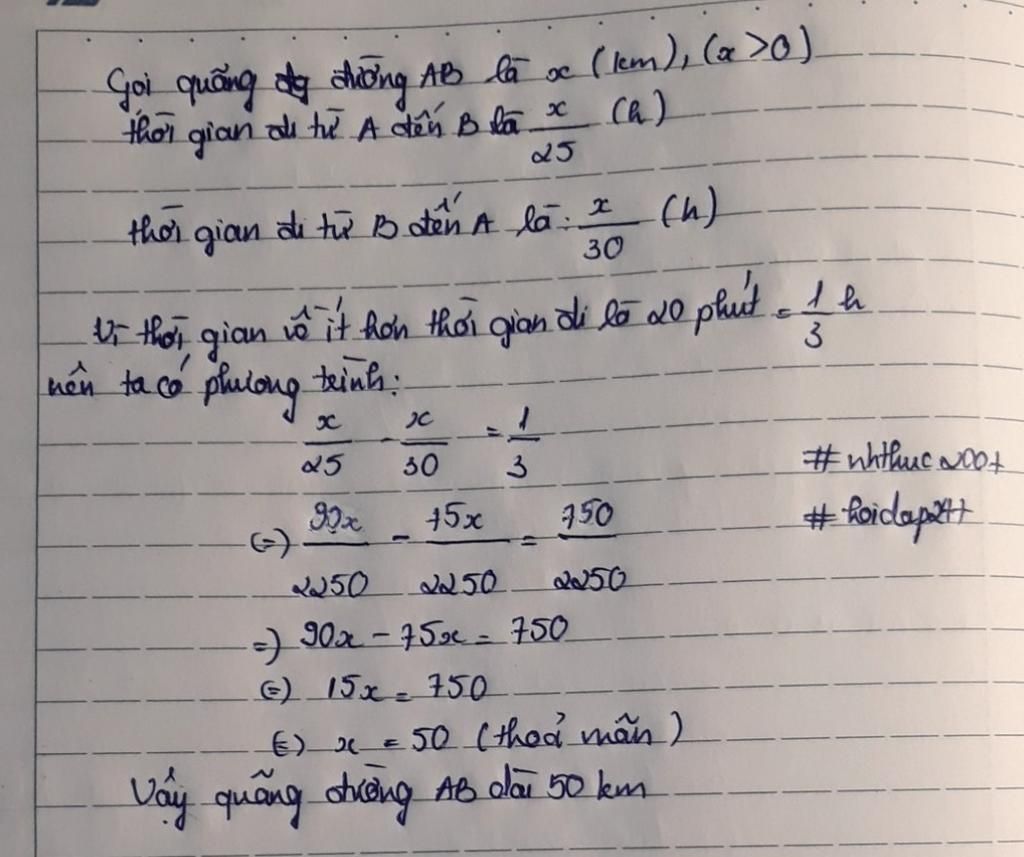 Gọi quãng đường AB là x (km), (x > 0)
thời gian đi từ A đến B là x/25 (h)
thời gian đi từ B đến A là: x/30 (h)
Vì thời gian về ít hơn thời gian đi là 20 phút = 1/3 h
nên ta có phương trình:
x/25 - x/30 = 1/3
(=) 90x/2250 - 75x/2250 = 750/2250
=) 90x - 75x = 750
(=) 15x = 750
(=) x = 50 (thoả mãn)
Vậy quãng đường AB dài 50 km
# nhthuc200+
# hoidap24+